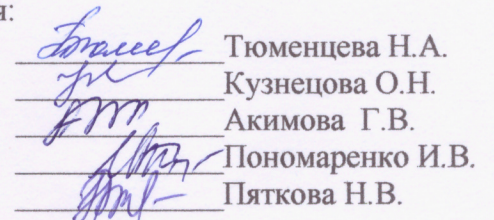 я:
Тюменцева Н.А.
Кузнецова О.Н.
Акимова Г.В.
Пономаренко И.В.
Пяткова Н.В.